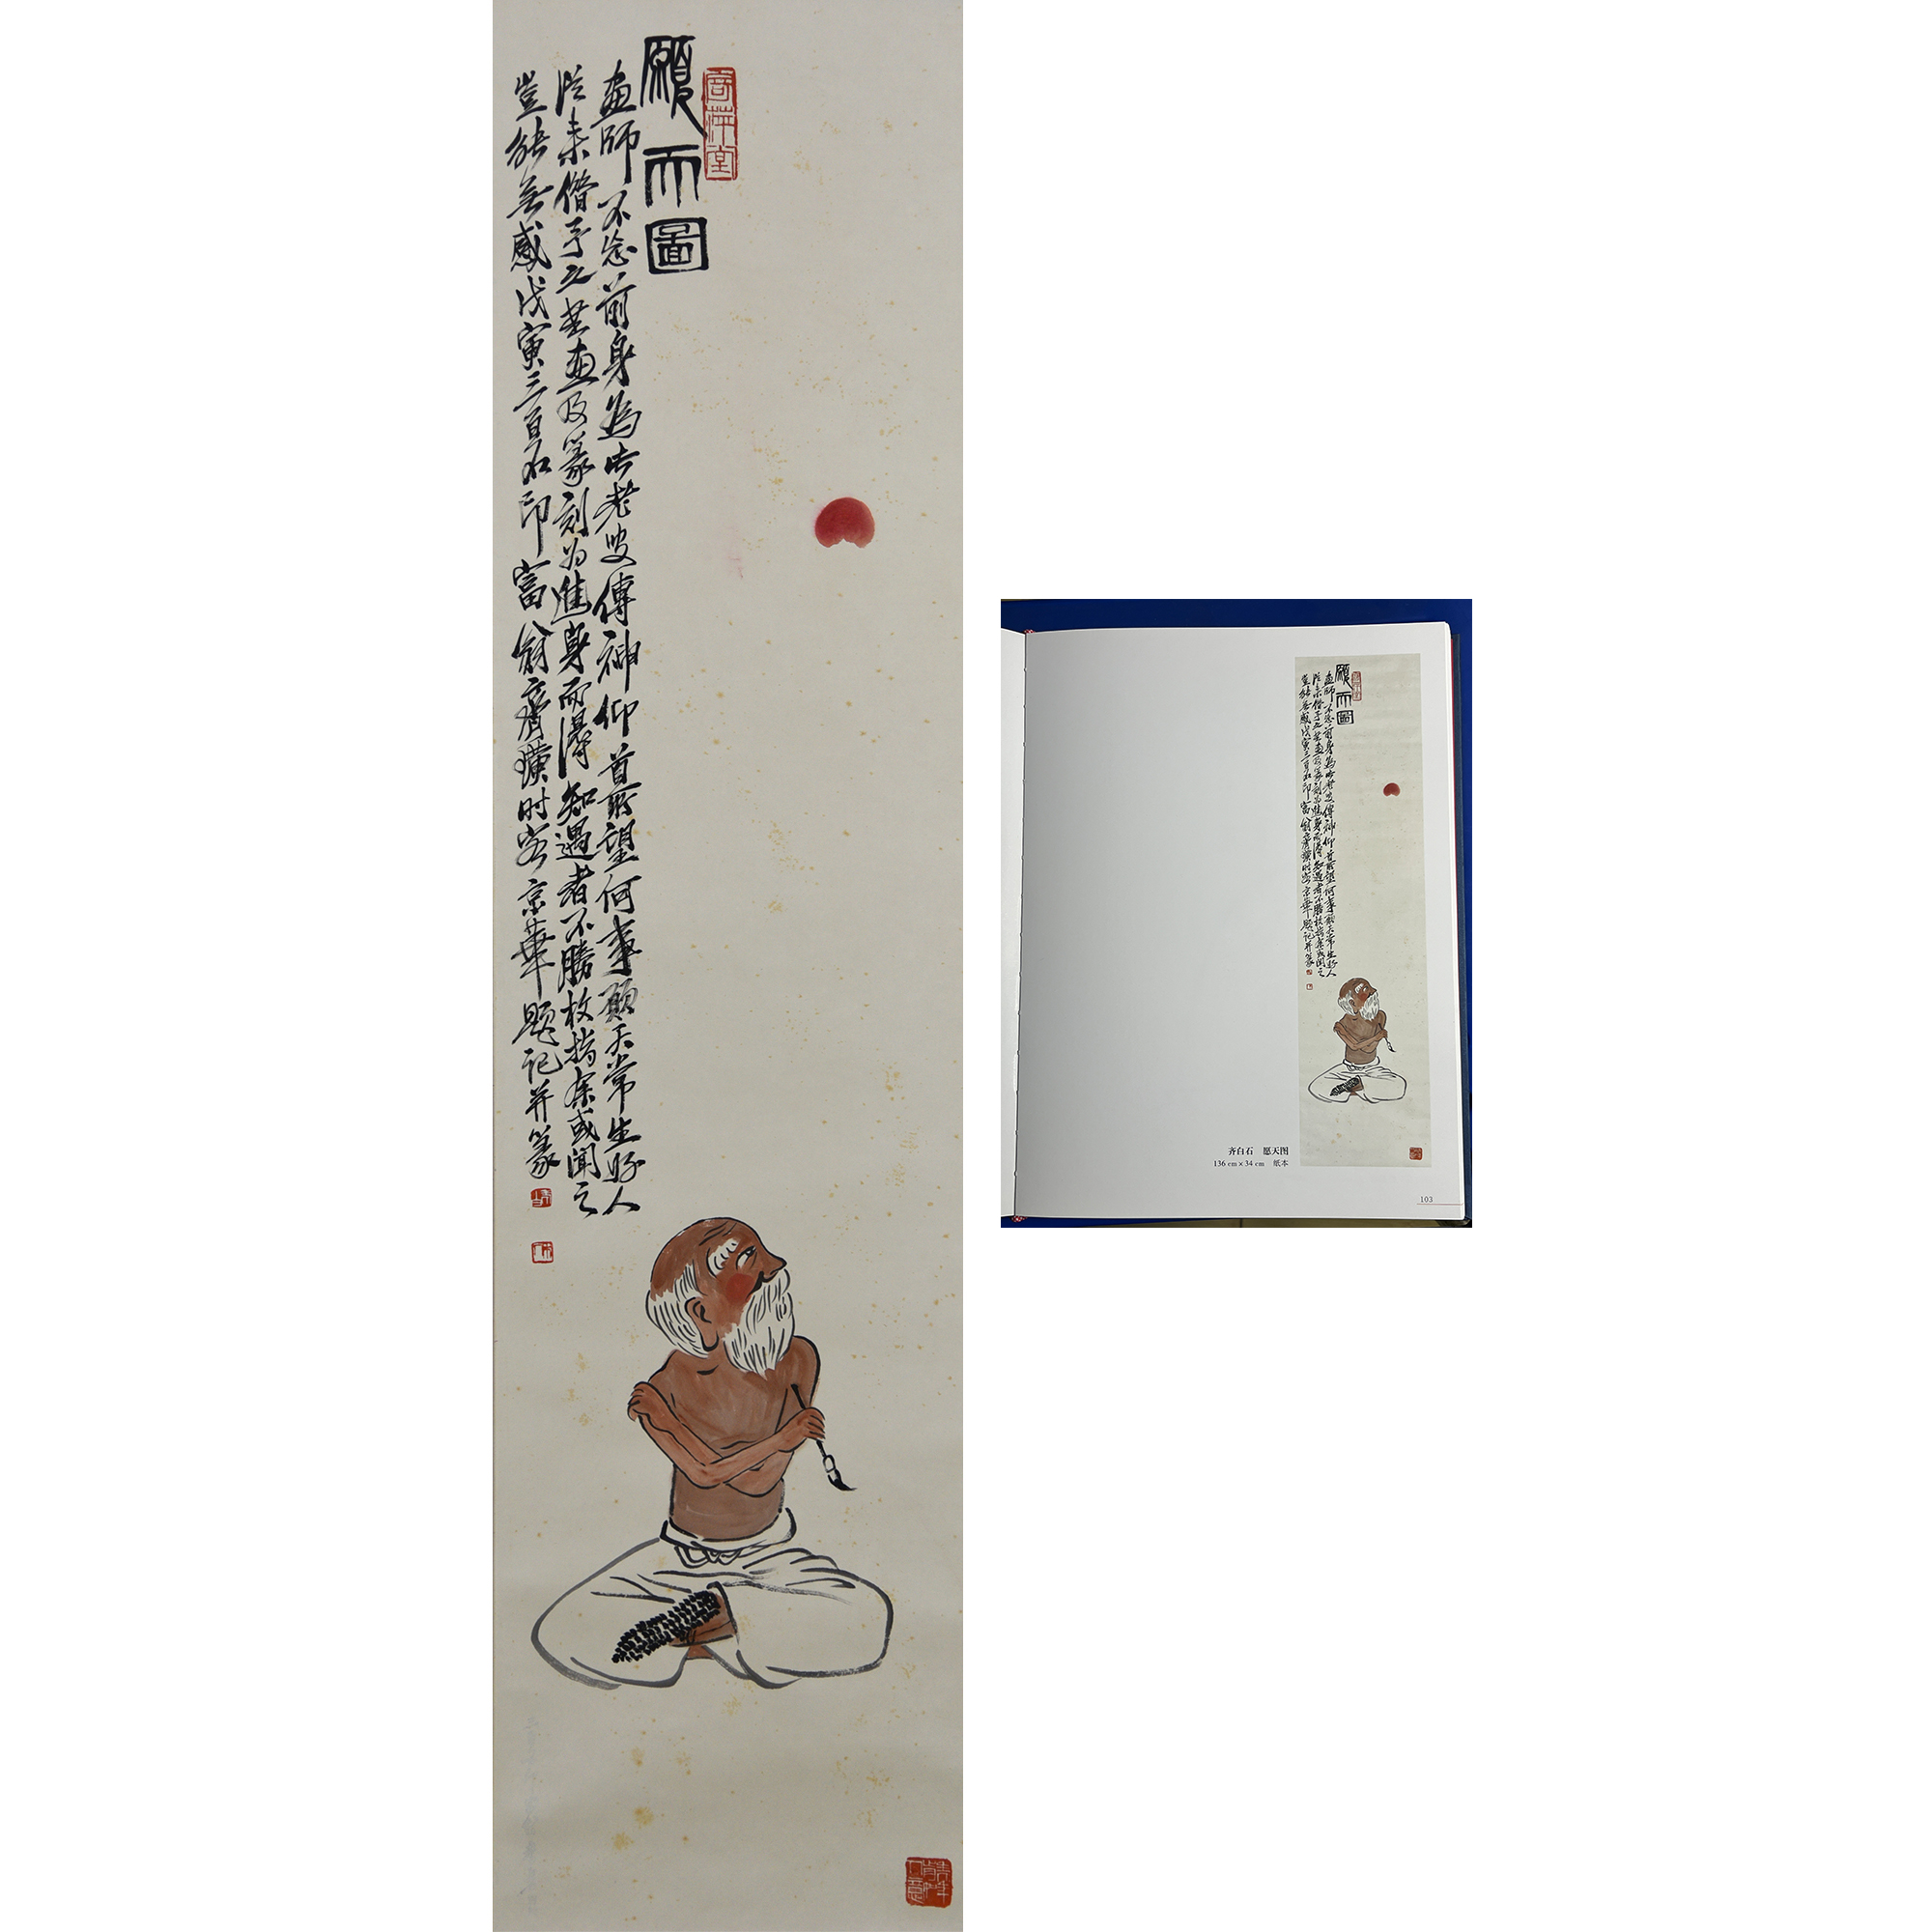 願天圖
畫師不忘前身為此老叟傳神仰首所望何事願天常生好人
從來借予之茔畫及篆刻為進身而得知遇者不勝枚指余或聞之
豈能無感戊寅三百石印富翁齊璜时客京華題記并篆
齐白石 愿天图
136 cm × 34 cm 纸本
103